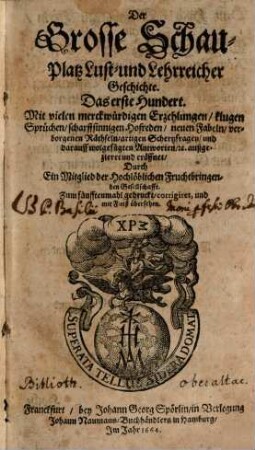 Der
Grosse Schau-
Platz Lust- und Lehrreicher
Geschichte.
Das erste Hundert.
Mit vielen merckwürdigen Erzehlungen / klugen
Sprüchen / scharffsinnigen Hofreden / neuen Fabeln / ver-
borgenen Räthseln / artigen Schertzfragen / und
darauff wolgefügten Antworten / ꝛc. außge-
zieret und eröffnet /
Durch
Ein Mitglied der Hochlöblichen Fruchtbringen-
den Gesellschafft.
Zum fünfftenmahl gedruckt / corrigiret, und
mit Fleiß übersehen.
ΧΡΣ
SUPERATA TELLUS SIDERA DONAT
Biblioth. oberaltac.
Franckfurt / bey Johann Georg Spörlin / in Verlegung
Johann Naumans / Buchhändlers in Hamburg /
Im Jahr 1664.